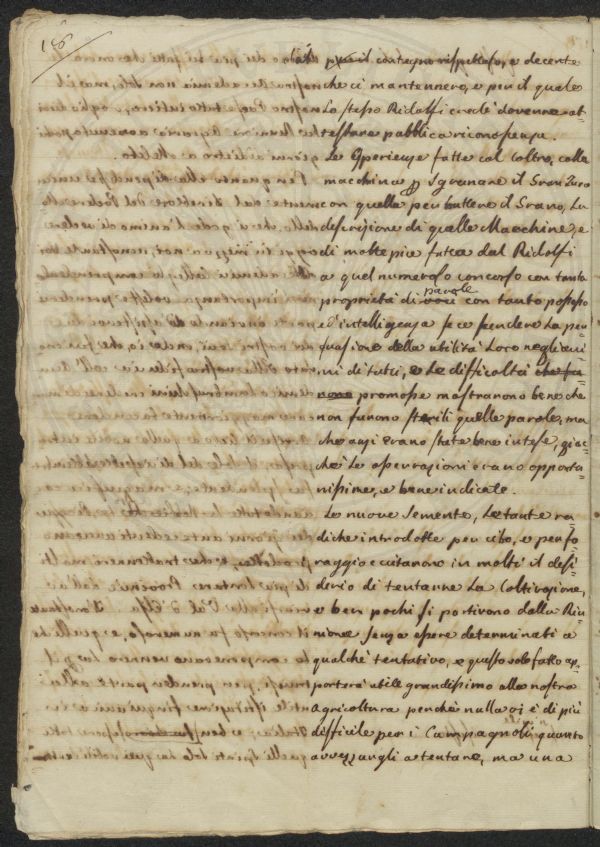 186
lati più il contegno rispettoso, e decente
che ci mantennero, e per il quale
Lo stesso Ridolfi credè dovenne at-
testare pubblica riconoscenza.
Le Esperienze fatte col Coltro, colla
macchina p Sgranare il Gran Turco
con quella per battere il Grano, La
descrizione di quelle Macchine, e
di molte più fatta dal Ridolfi
a quel numeroso concorso con tanta
proprietà di voci parole con tanto possesso
ed intelligenza fece scendere La per-
suasione della utilità Loro negli ani-
mi di tutti, e Le difficoltà che fu-
rono promosse mostrarono bene che
non furono sterili quelle parole, ma
che anzi erano state bene intese, giac-
chè Le osservazioni erano opportu-
nissime, e bene indicate.
Le nuove Semente, Le tante ra-
diche introdotte per cibo, e per fo-
raggio eccitarono in molti il desi-
derio di tentarne La Coltivazione,
e ben pochi si partirono dalla Riu-
nione senza essere determinati a
qualche tentativo, e questo solo fatto ap-
porterà utile grandissimo alla nostra
Agricoltura perchè nulla vi è di più
difficile per i Campagnoli quanto
avvezzargli a tentare, ma una